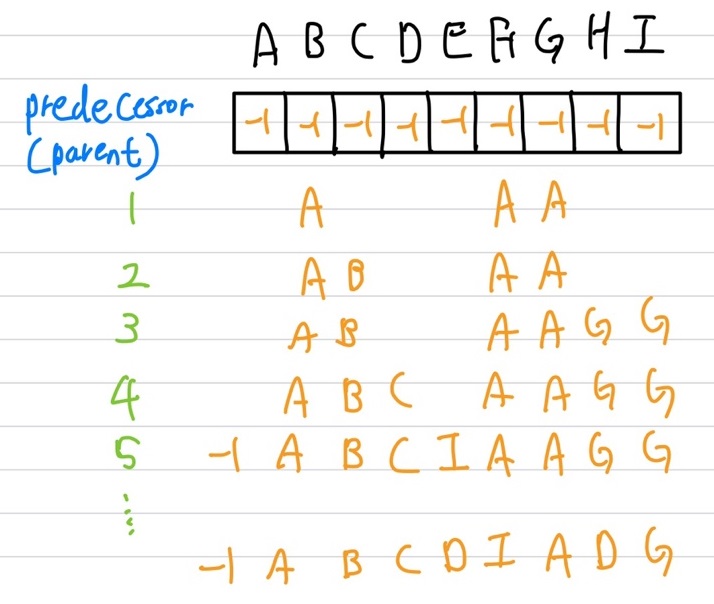 A B C D E F G H I
predecessor -1 -1 -1 -1 -1 -1 -1 -1 -1
(parent)
1 A A A
2 A B A A
3 A B A A G G
4 A B C A A G G
5 -1 A B C I A A G G
⋮
-1 A B C D I A D G